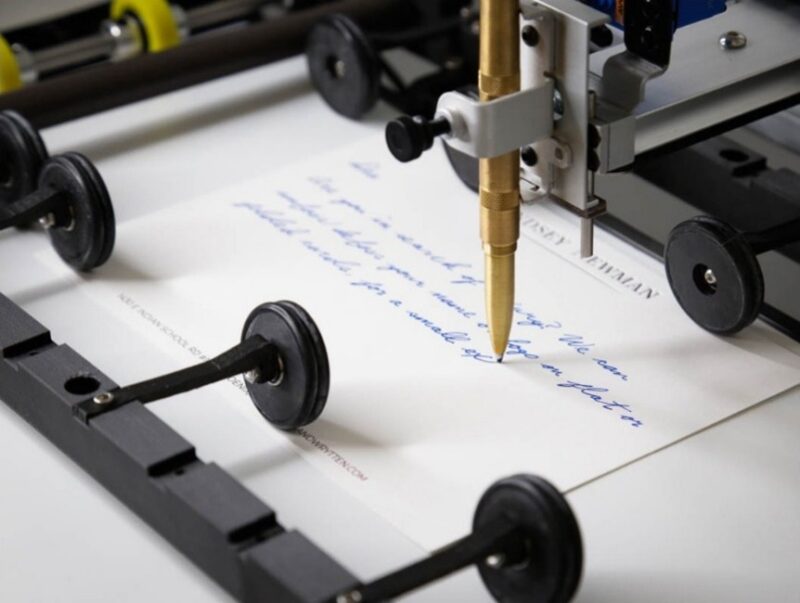 DSEY NEWMAN
Dear
Are you in search of We can
emboss deboss your name or logo on flat or
folded cards, for a small
1407 E INDIAN SCHOOL RD
HANDWRYTTEN.COM